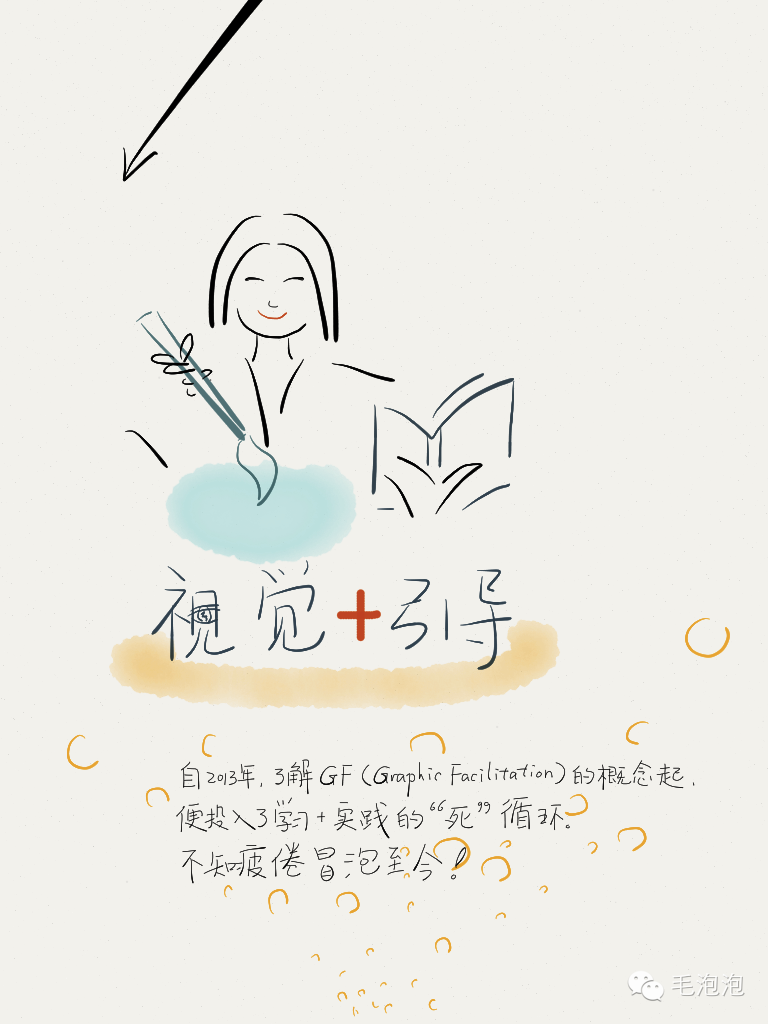 视觉+引导
自2013年,了解GF(Graphic Facilitation)的概念起,
便投入了学习+实践的“死”循环。
不知疲倦冒泡至今!
毛泡泡